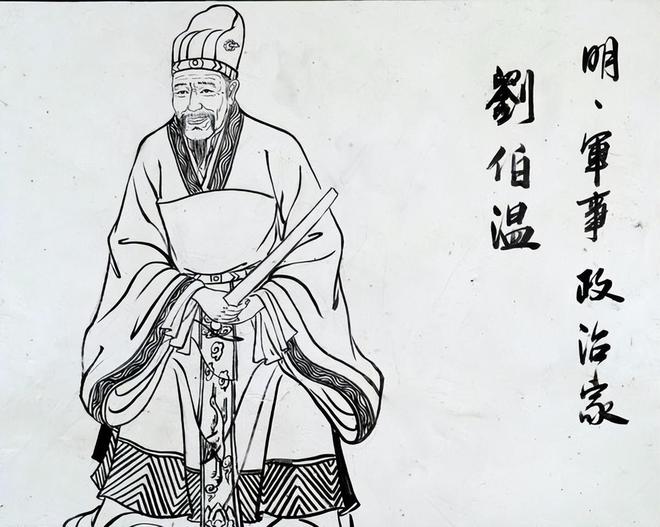 明、軍事政治家
劉伯温